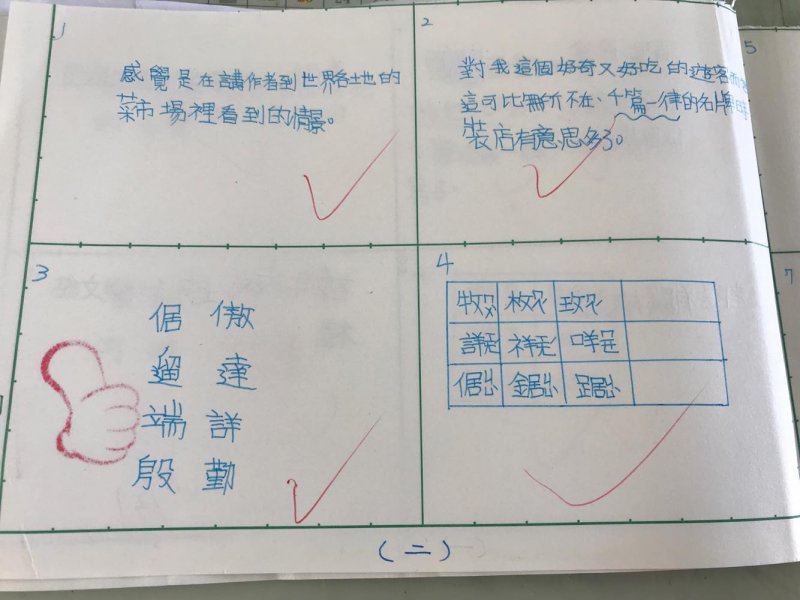 1
感覺是在講作者到世界各地的
菜市場裡看到的情景。
2
對我這個好奇又好吃的遊客而
這可比無所不在、千篇一律的名牌時
裝店有意思多了。
3
倨 傲
遛 達
端 詳
殷 勤
4
牧 枚 玫
詳 祥 咩
倨 鋸 踞
5
7
(二)